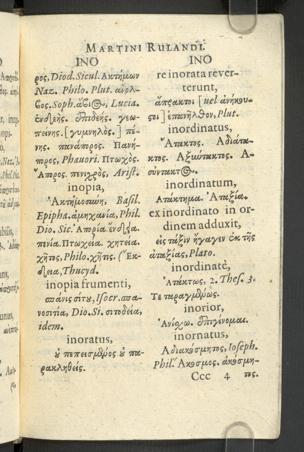 MARTINI RULANDI.
INO
ρος, Diod. Sicul. Ἀκτήμων
Naz. Philo. Plut.
Soph. Lucia.
ἐνδεής. ἐπιδεής. γεω-
πείνης. [γυμνηλὸς.] πέ-
νης. πανάπορος. Πανή-
πορος, Phauori. Πτωχὸς.
Ἄπορος. πενιχρὸς, Arist.
inopia,
Ἀκτημοσύνη, Basil.
Epipha. ἀμηχανία, Phil.
Dio. Sic. Ἀπορία ἔνδεια
πενία. Πτωχεία. χητεία.
χῆτος, Philo. χῆτις. Ἔκ-
δεια, Thucyd.
inopia frumenti,
σπάνις σίτυ, Isocr. σπα-
νοσιτία, Dio. Si. σιτοδεία,
idem.
inoratus,
ὐ πεπεισμένος ὐ πα-
ρακληθείς.
INO
re inorata reuer-
terunt,
ἄπρακτοι [uel ἀνήκου-
στοι] ἐπανῆλθον, Plut.
inordinatus,
Ἄτακτος. Ἀδιάτα-
κτος. Ἀξιώτακτος. Ἀ-
σύντακτος.
inordinatum,
Ἀτάκτημα. Ἀταξία.
ex inordinato in or-
dinem adduxit,
εἰς τάξιν ἤγαγεν ἐκ τῆς
ἀταξίας, Plato.
inordinatè,
Ἀτάκτως, 2. Thes. 3.
Τεταραγμένως.
inorior,
Ἀνίχω. ἐπιγίνομαι.
inornatus,
Ἀδιακόσμητος, Ioseph.
Phil. Ἄκοσμος. ἀκόσμη-
Ccc 4 τος.